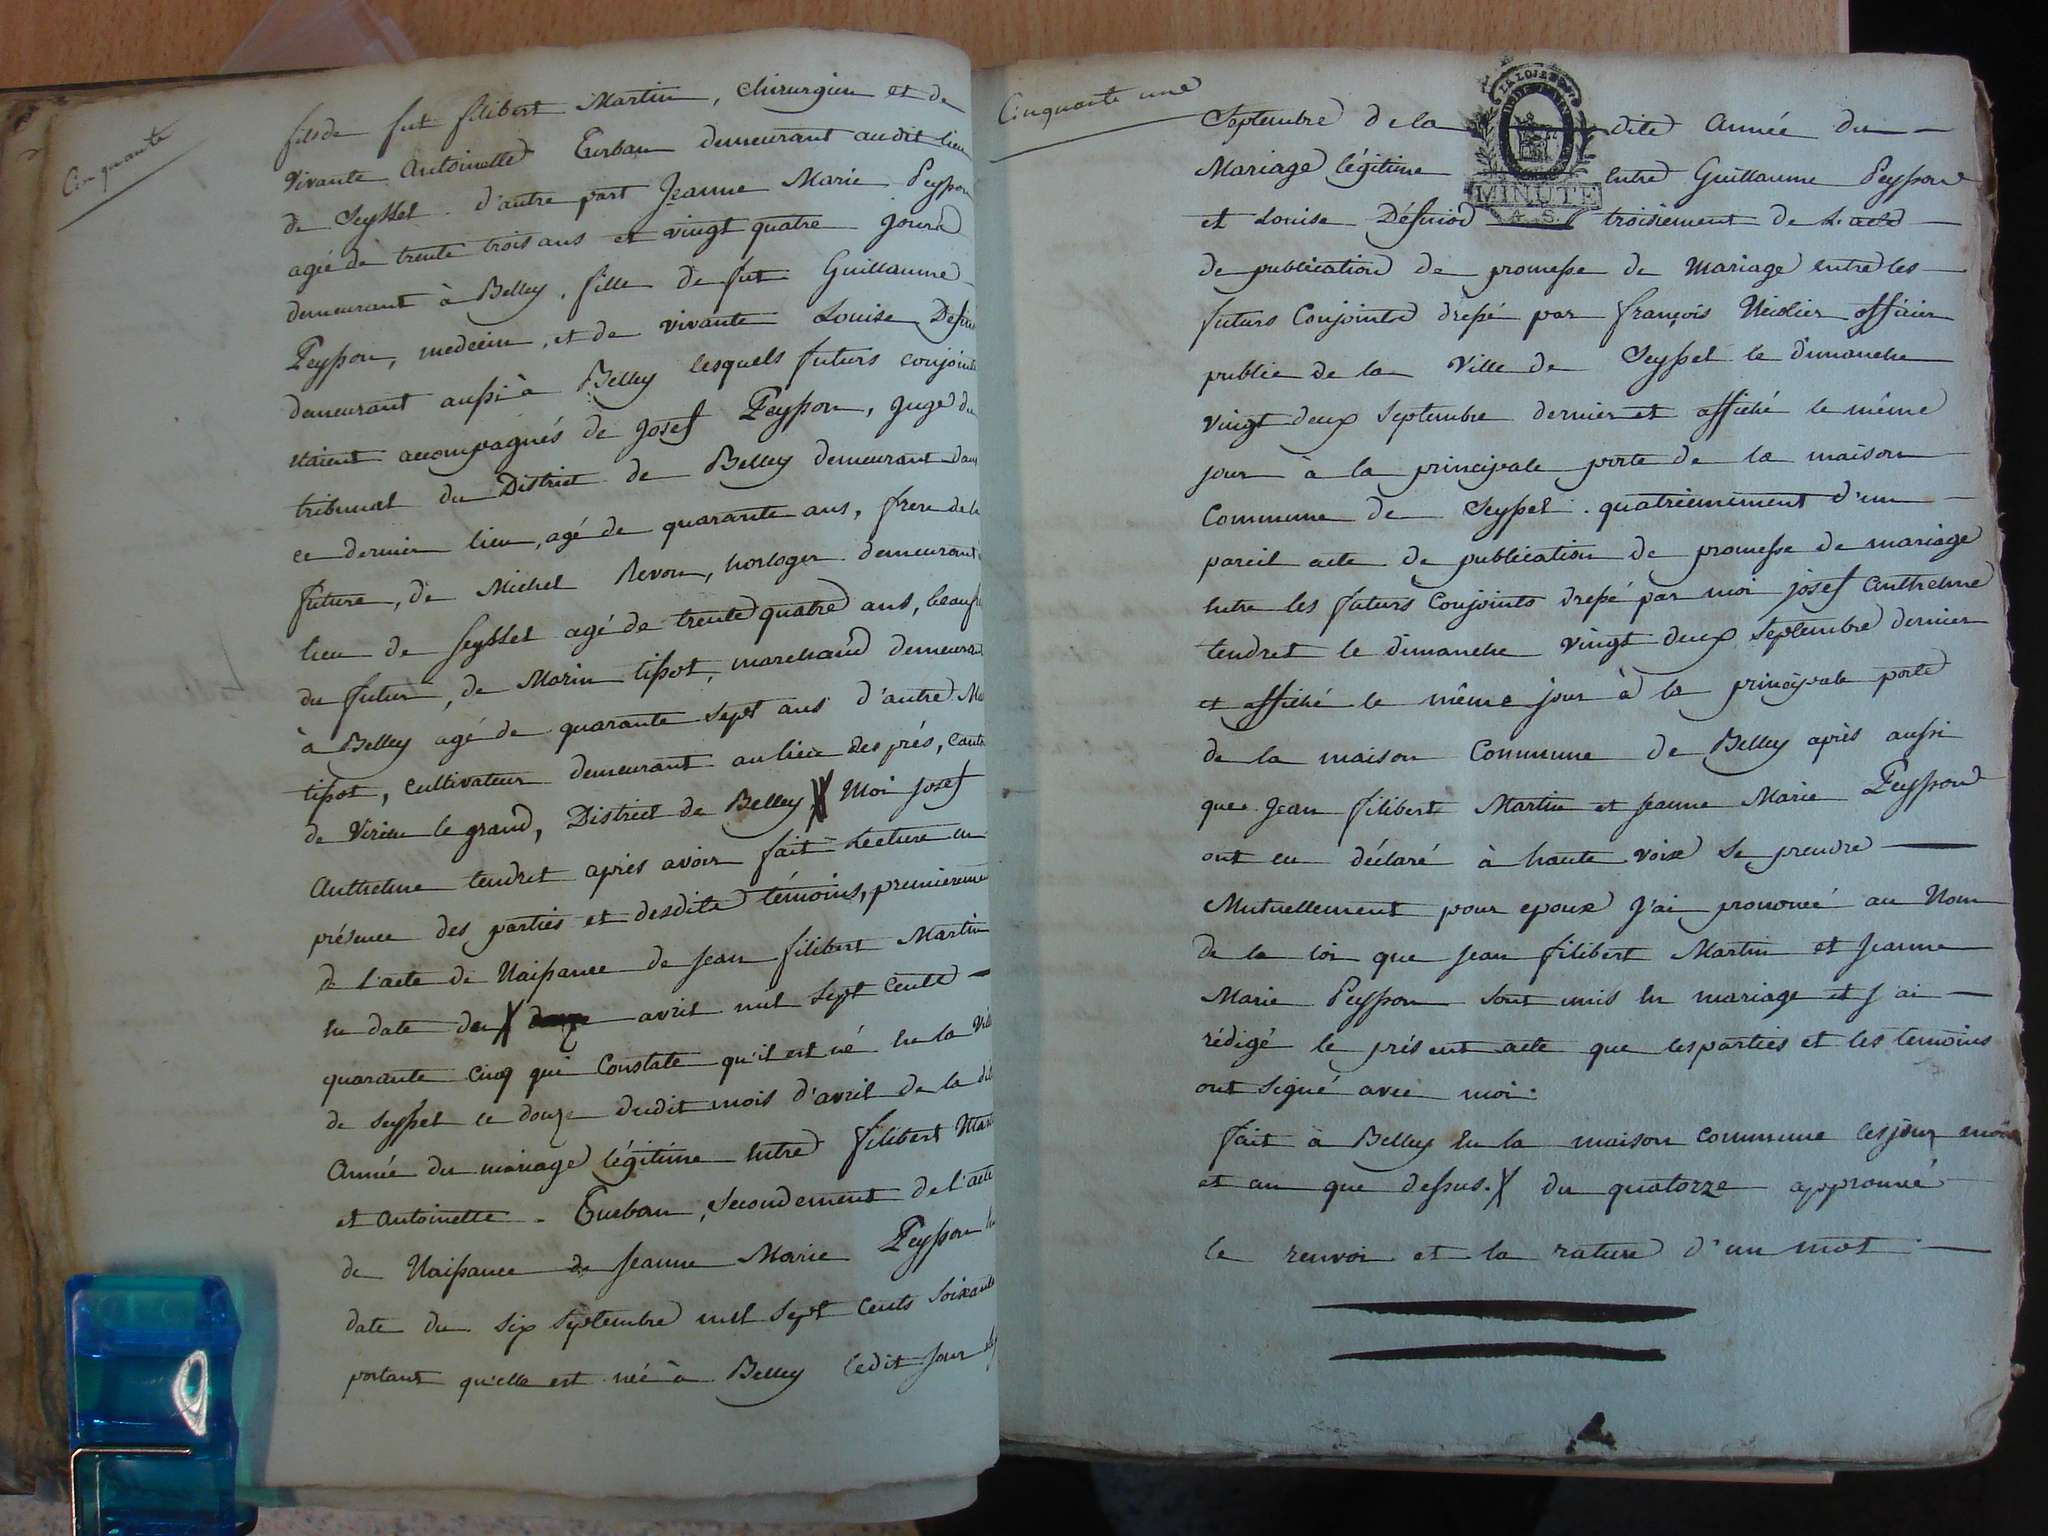 Cinquante
fils de fut filibert Martin, chirurgien et de
vivante Antoinette Curban demeurant audit lieu
de Seyssel. d'autre part Jeanne Marie Peysson
agée de trente trois ans et vingt quatre jours
demeurant à Belley, fille de fut Guillaume
Peysson, medecin, et de vivante Louise
demeurant aussi à Belley lesquels futurs conjoints
etaient accompagnés de Josef Peysson, Juge du
tribunal du District de Belley demeurant dans
ce dernier lieu, agé de quarante ans, frere de la
future, de Michel Revon, horloger demeurant
lieu de Seyssel agé de trente quatre ans,
du futur, de Marin tissot, marchand demeurant
à Belley agé de quarante sept ans d'autre
tissot, cultivateur demeurant au lieu des prés,
de Virieu le grand, District de Belley X Moi Josef
Anthelme tendret après avoir fait Lecture en
présence des parties et desdits témoins, premierement
de l'acte de Naissance de Jean filibert Martin
en date du X avril mil sept cents
quarante cinq qui Constate qu'il est né en la
de seyssel le douze dudit mois d'avril de la
Année du mariage légitime entre filibert
et Antoinette Curban, secondement de l'acte
de Naissance de Jeanne Marie Peysson
date du six septembre mil sept cents soixante
portant qu'elle est née à Belley ledit jour
Cinquante une
Septembre de la dite Année du
Mariage légitime entre Guillaume Peysson
et Louise Définiod troisiement de L'acte
de publication de promesse de Mariage entre les
futurs Conjoints dressé par françois Nicolier officier
public de la Ville de Seyssel le dimanche
vingt deux septembre dernier et affiché le même
jour à la principale porte de la maison
Commune de Seyssel. quatriemement d'un
pareil acte de publication de promesse de mariage
entre les futurs Conjoints dressé par moi josef anthelme
tendret le dimanche vingt deux septembre dernier
et affiché le même jour à la principale porte
de la maison Commune de Belley après aussi
que Jean filibert Martin et Jeanne Marie Peysson
ont eu déclaré à haute voix se prendre
Mutuellement pour epoux J'ai prononcé au Nom
de la loi que Jean filibert Martin et Jeanne
Marie Peysson sont unis en mariage et j'ai
rédigé le présent acte que les parties et les temoins
ont signé avec moi.
fait à Belley en la maison commune les jour mois
et an que dessus. X du quatorze approuvé
le renvoi et la rature d'un mot
LA LOI
MINUTE
A. S.